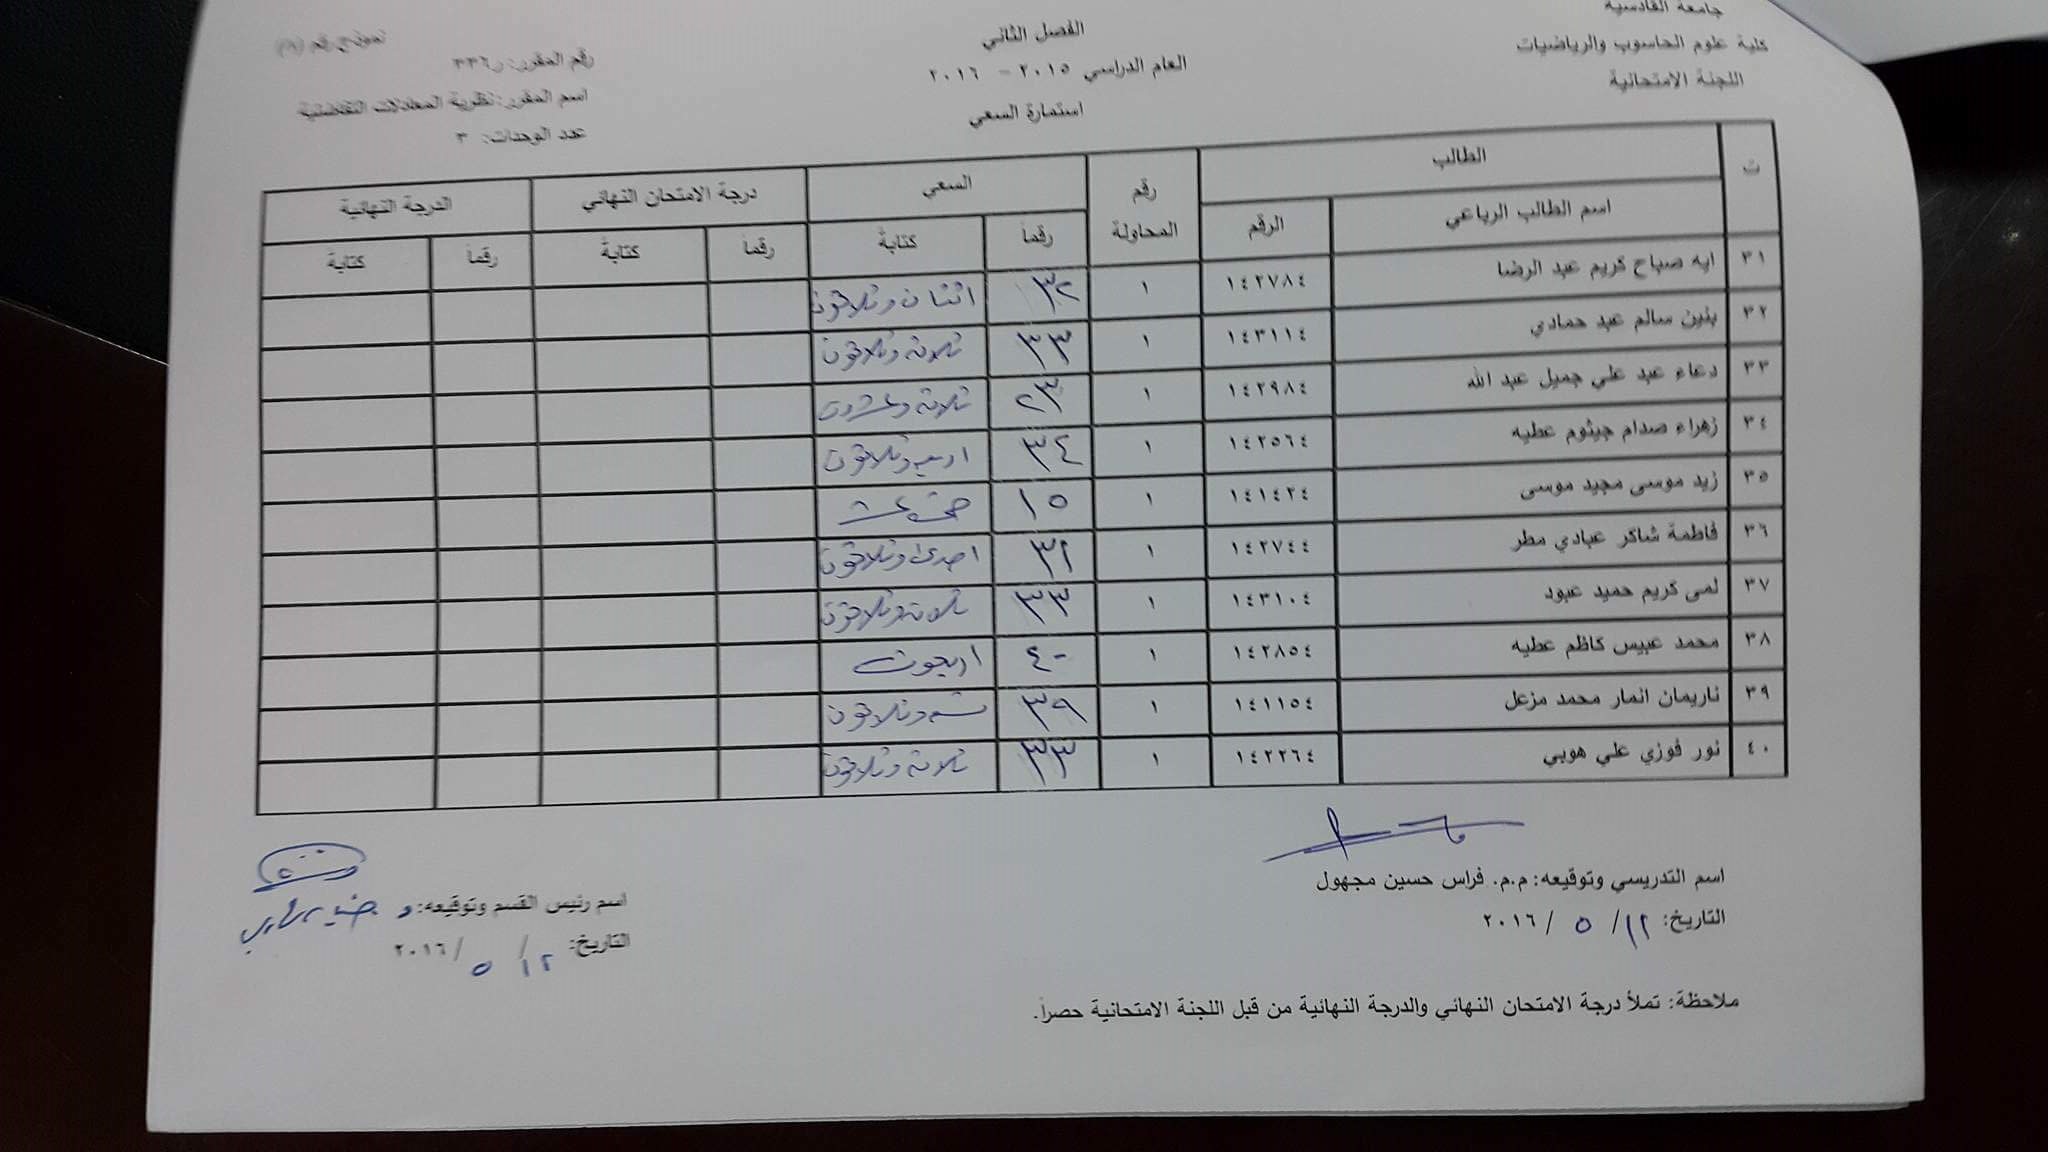 جامعة القادسية
كلية علوم الحاسوب والرياضيات
اللجنة الامتحانية
الفصل الثاني
العام الدراسي ٢٠١٥ - ٢٠١٦
استمارة السعي
نموذج رقم (٨)
رقم المقرر: ر٣٣٦
اسم المقرر: نظرية المعادلات التفاضلية
عدد الوحدات: ٣
ت الطالب رقم المحاولة السعي درجة الامتحان النهائي الدرجة النهائية
اسم الطالب الرباعي الرقم رقماً كتابةً رقماً كتابةً رقماً كتابةً
٣١ ايه صباح كريم عبد الرضا ١٤٢٧٨٤ ١ ٣٢ اثنان وثلاثون
٣٢ بنين سالم عبد حمادي ١٤٣١١٤ ١ ٣٣ ثلاثة وثلاثون
٣٣ دعاء عبد علي جميل عبد الله ١٤٢٩٨٤ ١ ٢٣ ثلاثة وعشرون
٣٤ زهراء صدام جيثوم عطيه ١٤٢٥٦٤ ١ ٣٤ اربعة وثلاثون
٣٥ زيد موسى مجيد موسى ١٤١٤٢٤ ١ ١٥ خمسة عشر
٣٦ فاطمة شاكر عبادي مطر ١٤٢٧٤٤ ١ ٣١ احدى وثلاثون
٣٧ لمى كريم حميد عبود ١٤٣١٠٤ ١ ٣٣ ثلاثة وثلاثون
٣٨ محمد عبيس كاظم عطيه ١٤٢٨٥٤ ١ ٤٠ اربعون
٣٩ ناريمان انمار محمد مزعل ١٤١١٥٤ ١ ٣٩ تسعة وثلاثون
٤٠ نور فوزي علي هوبي ١٤٢٢٦٤ ١ ٣٣ ثلاثة وثلاثون
اسم التدريسي وتوقيعه: م.م. فراس حسين مجهول
التاريخ: ١٢ / ٥ / ٢٠١٦
اسم رئيس القسم وتوقيعه:
التاريخ: ١٢ / ٥ / ٢٠١٦
ملاحظة: تملأ درجة الامتحان النهائي والدرجة النهائية من قبل اللجنة الامتحانية حصراً.